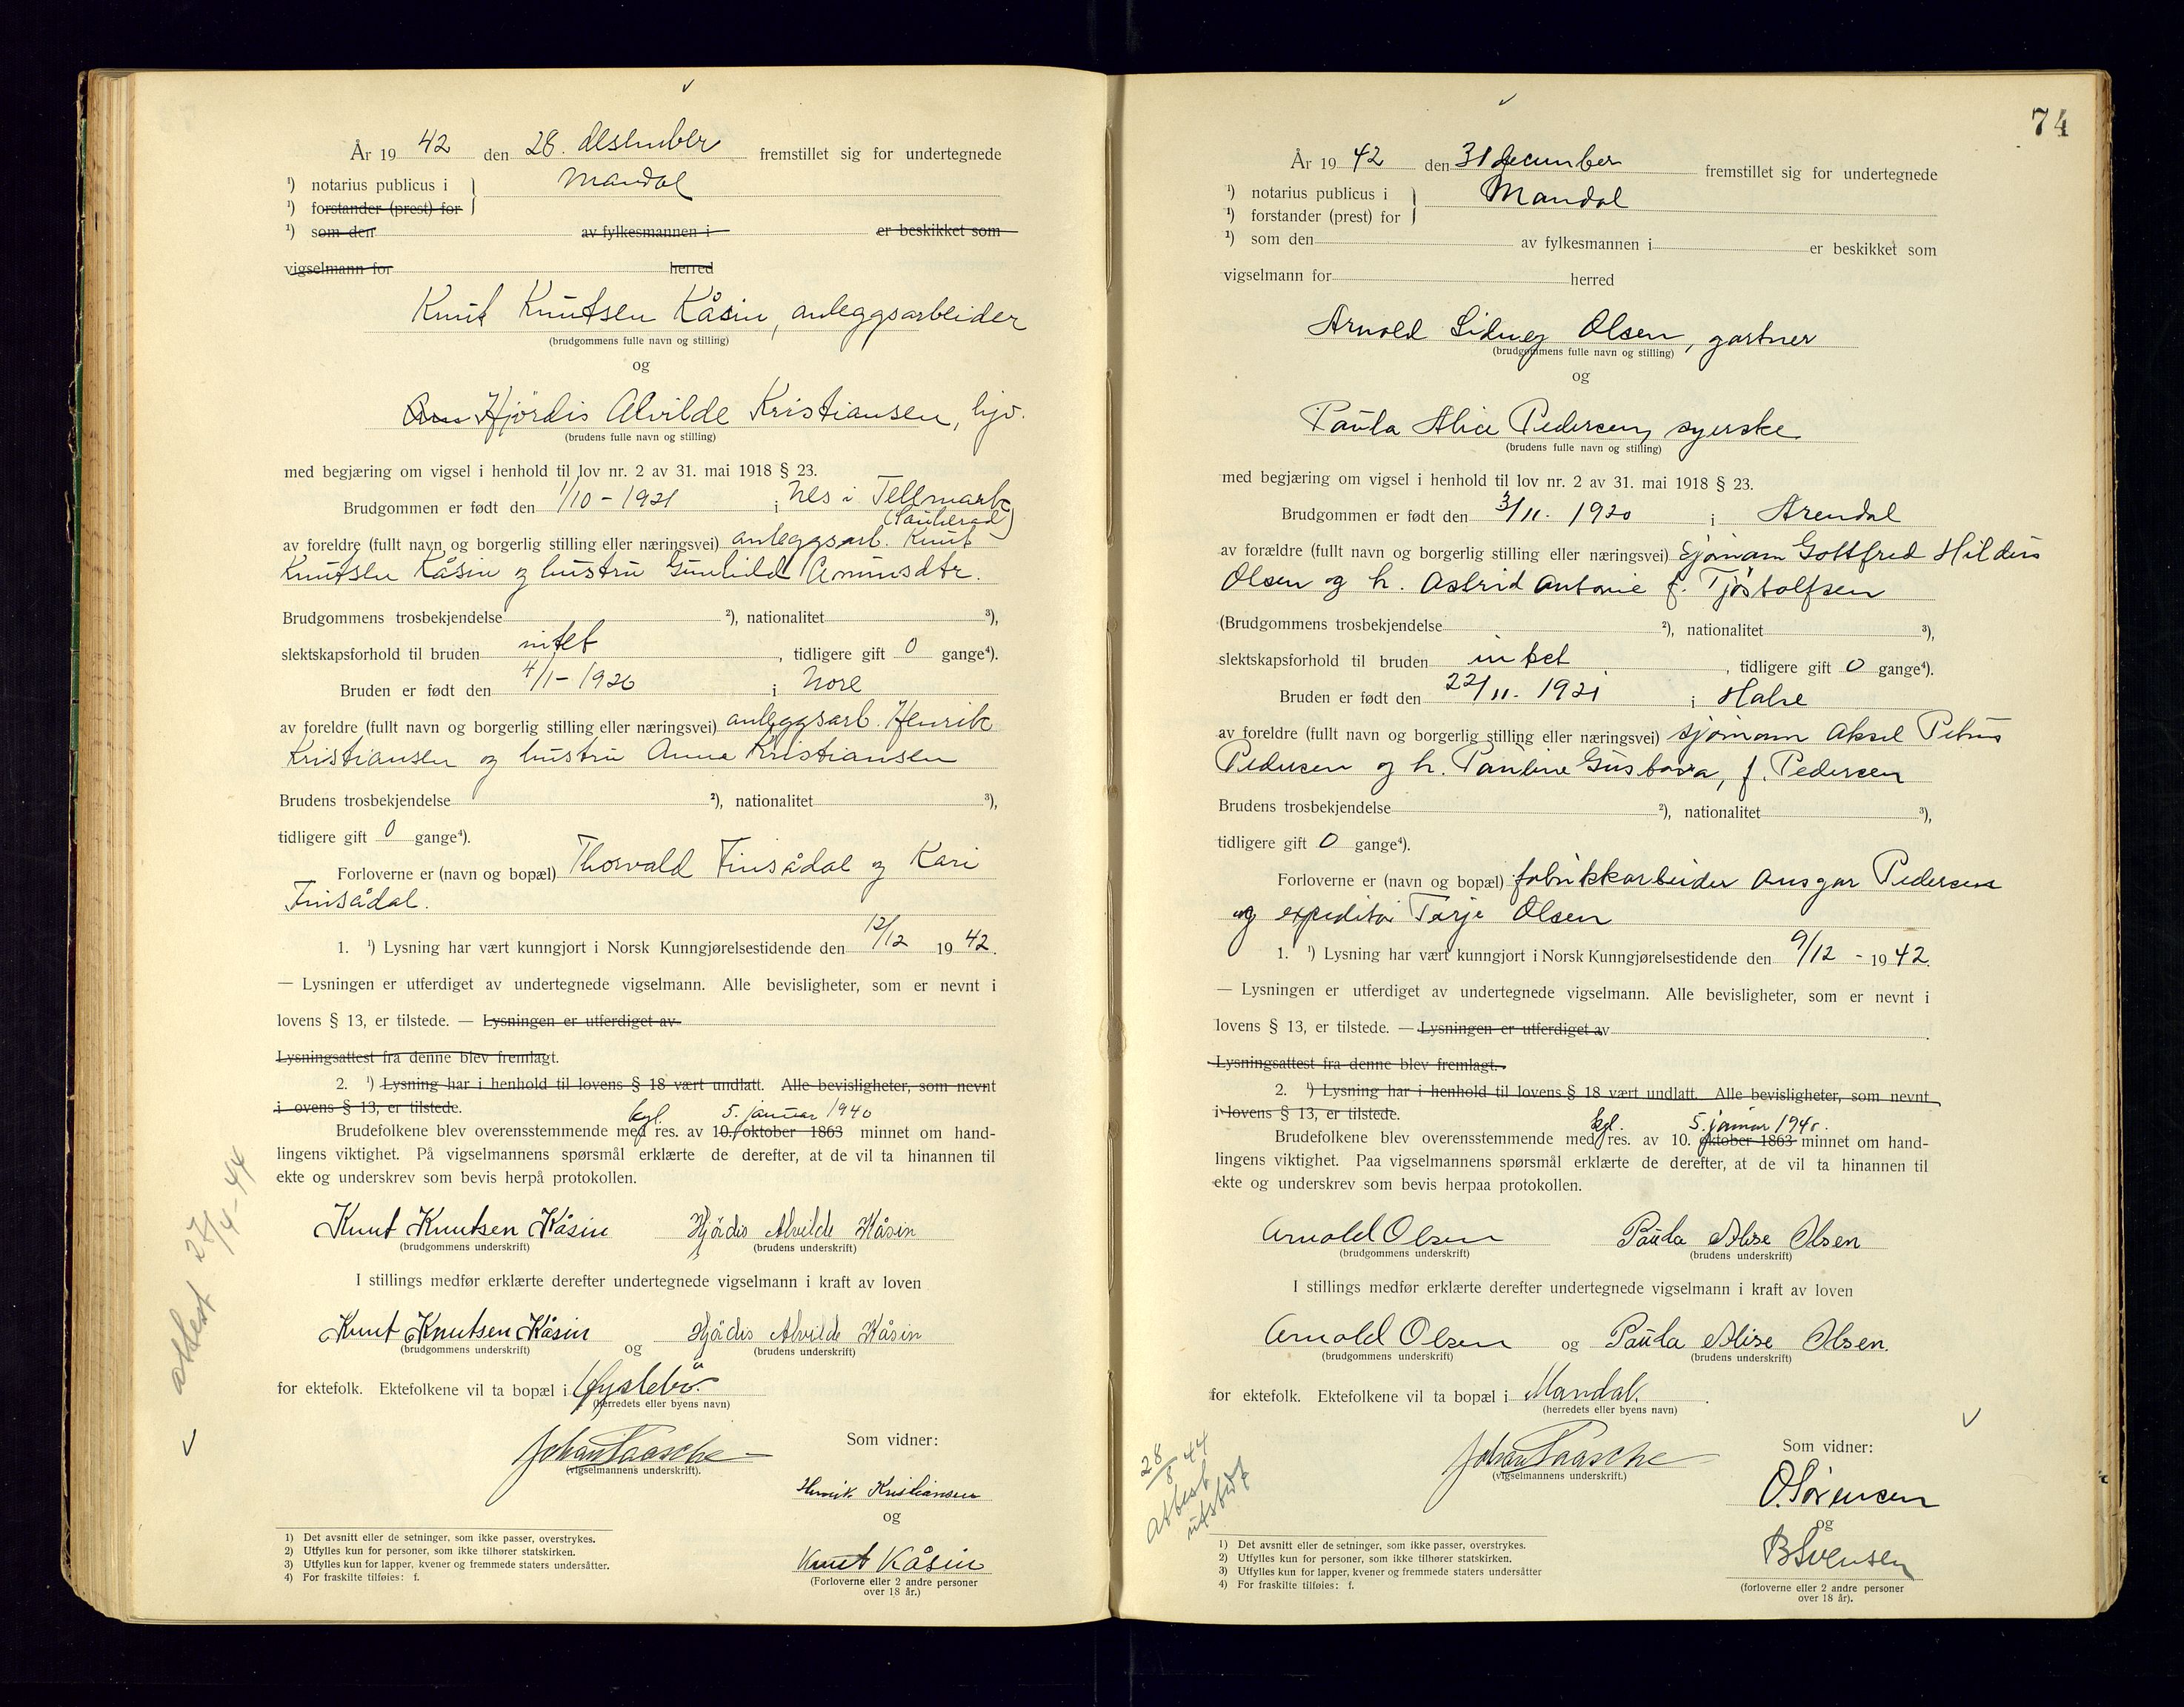 År 19 42 den 28. desember fremstillet sig for undertegnede
¹) notarius publicus i } Mandal
¹) forstander (prest) for
¹) som den av fylkesmannen i er beskikket som
vigselmann for herred
Knut Knutsen Kåsin, anleggsarbeider
(brudgommens fulle navn og stilling)
og
Hjördis Alvilde Kristiansen, hjv.
(brudens fulle navn og stilling)
med begjæring om vigsel i henhold til lov nr. 2 av 31. mai 1918 § 23.
Brudgommen er født den 1/10 - 1921 i Nes i Tellmark
(Sauherad)
av foreldre (fullt navn og borgerlig stilling eller næringsvei) anleggsarb. Knut
Knutsen Kåsin og hustru Gunhild
Brudgommens trosbekjendelse ²), nationalitet ³),
slektskapsforhold til bruden intet, tidligere gift 0 gange⁴).
Bruden er født den 4/1 - 1920 i Nore
av foreldre (fullt navn og borgerlig stilling eller næringsvei) anleggsarb. Henrik
Kristiansen og hustru Anna Kristiansen
Brudens trosbekjendelse ²), nationalitet ³),
tidligere gift 0 gange⁴).
Forloverne er (navn og bopæl) Thorvald Finsådal og Kari
Finsådal.
1. ¹) Lysning har vært kunngjort i Norsk Kunngjørelsestidende den 12/12 19 42.
— Lysningen er utferdiget av undertegnede vigselmann. Alle bevisligheter, som er nevnt i
lovens § 13, er tilstede. — Lysningen er utferdiget av
Lysningsattest fra denne blev fremlagt.
2. ¹) Lysning har i henhold til lovens § 18 vært undlatt. Alle bevisligheter, som nevnt
i ovens § 13, er tilstede.
kgl. 5. januar 1940
Brudefolkene blev overensstemmende med res. av 10. oktober 1863 minnet om hand-
lingens viktighet. På vigselmannens spørsmål erklærte de derefter, at de vil ta hinannen til
ekte og underskrev som bevis herpå protokollen.
Knut Knutsen Kåsin Hjördis Alvilde Kåsin
(brudgommens underskrift) (brudens underskrift)
I stillings medfør erklærte derefter undertegnede vigselmann i kraft av loven
Knut Knutsen Kåsin og Hjördis Alvilde Kåsin
(brudgommens underskrift) (brudens underskrift)
for ektefolk. Ektefolkene vil ta bopæl i Øyslebö.
(herredets eller byens navn)
Johan Paasche
(vigselmannens underskrift).
Som vidner:
Henrik Kristiansen
og
Knut Kåsin
(Forloverne eller 2 andre personer
over 18 år.)
attest 27/4-44
1) Det avsnitt eller de setninger, som ikke passer, overstrykes.
2) Utfylles kun for personer, som ikke tilhører statskirken.
3) Utfylles kun for lapper, kvener og fremmede staters undersåtter.
4) For fraskilte tilføies: f.
74
År 19 42 den 31 december fremstillet sig for undertegnede
¹) notarius publicus i } Mandal
¹) forstander (prest) for
¹) som den av fylkesmannen i er beskikket som
vigselmann for herred
Arnold Olsen, gartner
(brudgommens fulle navn og stilling)
og
Paula Alice Pedersen, syerske
(brudens fulle navn og stilling)
med begjæring om vigsel i henhold til lov nr. 2 av 31. mai 1918 § 23.
Brudgommen er født den 3/11. 1920 i Arendal
av forældre (fullt navn og borgerlig stilling eller næringsvei) Sjømann Gottfred
Olsen og h. Astrid Antonie f. Tjöstolfsen
(Brudgommens trosbekjendelse ²), nationalitet ³),
slektskapsforhold til bruden intet, tidligere gift 0 gange⁴).
Bruden er født den 22/11. 1921 i Halse
av foreldre (fullt navn og borgerlig stilling eller næringsvei) sjømann Aksel Petrus
Pedersen og h. Pauline Gustava, f. Pedersen
Brudens trosbekjendelse ²), nationalitet ³),
tidligere gift 0 gange⁴).
Forloverne er (navn og bopæl) fabrikkarbeider Ansgar Pedersen
og expeditör Terje Olsen
1. ¹) Lysning har vært kunngjort i Norsk Kunngjørelsestidende den 9/12 - 19 42.
— Lysningen er utferdiget av undertegnede vigselmann. Alle bevisligheter, som er nevnt i
lovens § 13, er tilstede. — Lysningen er utferdiget av
Lysningsattest fra denne blev fremlagt.
2. ¹) Lysning har i henhold til lovens § 18 vært undlatt. Alle bevisligheter, som nevnt
i lovens § 13, er tilstede.
kgl. 5. januar 1940.
Brudefolkene blev overensstemmende med res. av 10. oktober 1863 minnet om hand-
lingens viktighet. Paa vigselmannens spørsmål erklærte de derefter, at de vil ta hinannen til
ekte og underskrev som bevis herpaa protokollen.
Arnold Olsen Paula Alise Olsen
(brudgommens underskrift) (brudens underskrift)
I stillings medfør erklærte derefter undertegnede vigselmann i kraft av loven
Arnold Olsen og Paula Alise Olsen.
(brudgommens underskrift) (brudens underskrift)
for ektefolk. Ektefolkene vil ta bopæl i Mandal.
(herredets eller byens navn)
Johan Paasche
(vigselmannens underskrift.)
Som vidner:
O. Sörensen
og
B Svensen
(forloverne eller 2 andre personer
over 18 år).
28/8 44
attest
utstedt
1) Det avsnitt eller de setninger, som ikke passer, overstrykes.
2) Utfylles kun for personer, som ikke tilhører statskirken.
3) Utfylles kun for lapper, kvener og fremmede staters undersåtter
4) For fraskilte tilføies: f.